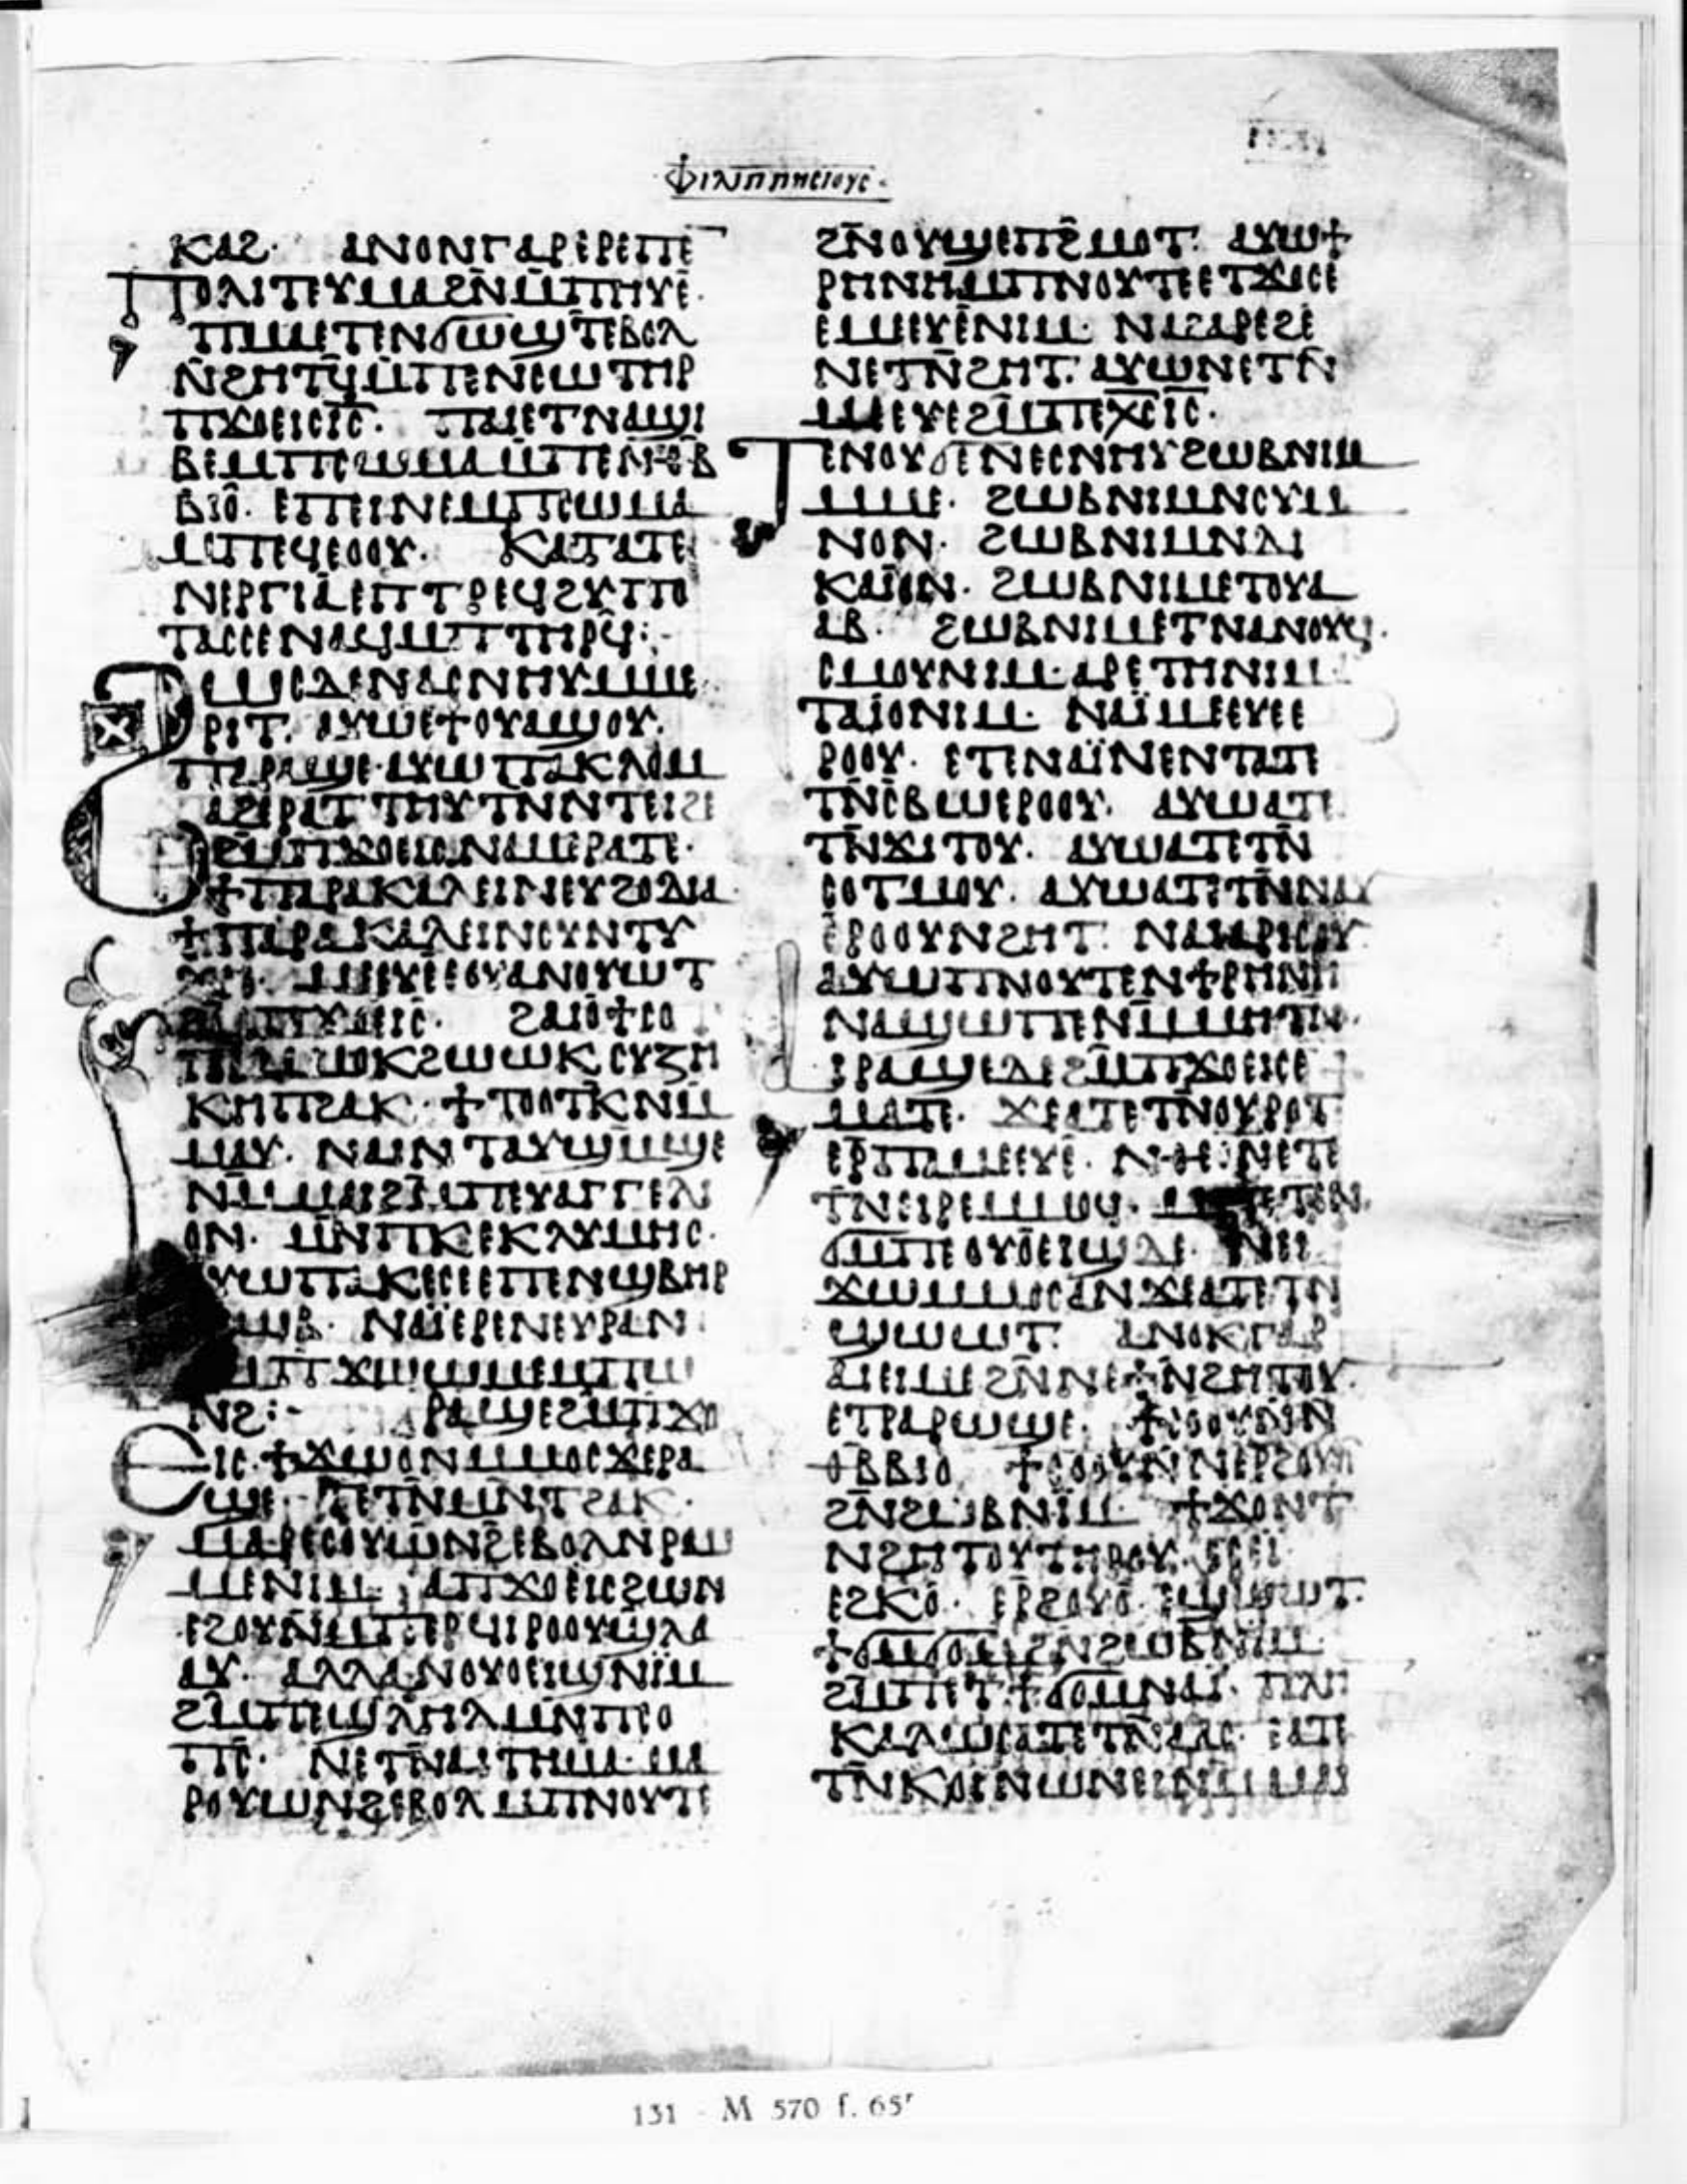 ⲫⲓⲗⲓⲡⲡⲏⲥⲓⲟⲩⲥ·
ⲕⲁϩ· ⲁⲛⲟⲛⲅⲁⲣⲉⲣⲉⲡⲉ
ⲡⲟⲗⲓⲧⲉⲩⲙⲁϩⲛ̄ⲙ̄ⲡⲏⲩⲉ·
ⲡⲙⲁⲉⲧⲛ̄ϭⲱϣⲧⲉⲃⲟⲗ
ⲛ̄ϩⲏⲧϥ̄ⲙ̄ⲡⲉⲛⲥⲱⲧⲏⲣ
ⲡϫⲟⲉⲓⲥⲓ̄ⲥ̄· ⲡⲁⲓⲉⲧⲛⲁϣⲓ
ⲃⲉⲙⲡⲥⲱⲙⲁⲙ̄ⲡⲉⲛⲑⲃ
ⲃⲓⲟ· ⲉⲡⲉⲓⲛⲉⲙⲡⲥⲱⲙⲁ
ⲙⲡⲉϥⲉⲟⲟⲩ· ⲕⲁⲧⲁⲧⲉ
ⲛⲉⲣⲅⲓⲁⲉⲡⲧⲣⲉϥϩⲩⲡⲟ
ⲧⲁⲥⲥⲉⲛⲁϥⲙⲡⲧⲏⲣϥ̄:-
ϩⲱⲥⲇⲉⲛⲁⲥⲛⲏⲩⲙⲙⲉ
ⲣⲓⲧ· ⲁⲩⲱⲉϯⲟⲩⲁϣⲟⲩ·
ⲡⲁⲣⲁϣⲉ·ⲁⲩⲱⲡⲁⲕⲗⲟⲙ
ⲁϩⲉⲣⲁⲧⲧⲏⲩⲧⲛⲛⲧⲉⲓϩⲉ
ϩⲙⲡϫⲟⲉⲓⲥⲛⲁⲙⲉⲣⲁⲧⲉ·
ϯⲡⲁⲣⲁⲕⲁⲗⲉⲓⲛⲉⲩϩⲟⲇⲓⲁ·
ϯⲡⲁⲣⲁⲕⲁⲗⲉⲓⲛⲥⲩⲛⲧⲩ
ⲭⲏ· ⲙⲉⲉⲩⲉⲉⲟⲩⲁⲛⲟⲩⲱⲧ
ϩⲙⲡϫⲟⲉⲓⲥ· ϩⲁⲓⲟϯⲥⲟ
ⲡⲥⲙⲙⲟⲕϩⲱⲱⲕⲥⲩⲍⲏ
ⲕⲏⲡϩⲁⲕ· ϯⲧⲟⲟⲧⲕⲛⲙ̄
ⲙⲁⲩ· ⲛⲁⲓⲛⲧⲁⲩϣⲙ̄ϣⲉ
ⲛⲙ̄ⲙⲁⲓϩⲙ̄ⲡⲉⲩⲁⲅⲅⲉⲗⲓ
ⲟⲛ· ⲙⲛ̄ⲡⲕⲉⲕⲗⲩⲙⲏⲥ·
ⲁⲩⲱⲡⲕⲉⲥⲉⲉⲡⲉⲛϣⲃⲏⲣ
ⲣϩⲱⲃ· ⲛⲁⲓ̈ⲉⲣⲉⲛⲉⲩⲣⲁⲛ
ϩⲙⲡϫⲱⲱⲙⲉⲙⲡⲱ
ⲛϩ:- ⲣⲁϣⲉϩⲙⲡϫⲟ
ⲉⲓⲥ·ϯϫⲱⲟⲛⲙⲙⲟⲥϫⲉⲣⲁ
ϣⲉ· ⲧⲉⲧⲛⲙⲛⲧϩⲁⲕ·
ⲙⲁⲣⲉⲥⲟⲩⲱⲛϩⲉⲃⲟⲗⲛⲣⲱ
ⲙⲉⲛⲓⲙ· ⲁⲡϫⲟⲉⲓⲥϩⲱⲛ
ⲉϩⲟⲩⲛⲙⲡⲣϥⲓⲣⲟⲟⲩϣⲗⲁ
ⲁⲩ· ⲁⲗⲗⲁⲛⲟⲩⲟⲉⲓϣⲛⲓⲙ
ϩⲙⲡⲉϣⲗⲏⲗⲙⲛⲡⲥⲟ
ⲡⲥ· ⲛⲉⲧⲛ̄ⲁⲓⲧⲏⲙⲁ·ⲙⲁ
ⲣⲟⲩⲱⲛϩⲉⲃⲟⲗⲙⲡⲛⲟⲩⲧⲉ
ϩⲛ̄ⲟⲩϣⲉⲡϩ̄ⲙⲟⲧ· ⲁⲩⲱϯ
ⲣⲏⲛⲏⲙⲡⲛⲟⲩⲧⲉⲉⲧϫⲟⲥⲉ
ⲉⲙⲉⲉⲩⲉⲛⲓⲙ· ⲛⲁϩⲁⲣⲉϩⲉ
ⲛⲉⲧⲛ̄ϩⲏⲧ· ⲁⲩⲱⲛⲉⲧⲛ̄
ⲙⲉⲉⲩⲉϩⲙ̄ⲡⲉⲭ̄ⲥ̄ⲓ̄ⲥ̄·
ⲧⲉⲛⲟⲩϭⲉⲛⲉⲥⲛⲏⲩϩⲱⲃⲛⲓⲙ
ⲙⲙⲉ· ϩⲱⲃⲛⲓⲙⲛⲥⲉⲙ
ⲛⲟⲛ· ϩⲱⲃⲛⲓⲙⲛⲇⲓ
ⲕⲁⲓⲟⲛ· ϩⲱⲃⲛⲓⲙⲉⲧⲟⲩⲁ
ⲁⲃ· ϩⲱⲃⲛⲓⲙⲉⲧⲛⲁⲛⲟⲩϥ·
ⲥⲙⲟⲩⲛⲓⲙ·ⲁⲣⲉⲧⲏⲛⲓⲙ·
ⲧⲁⲓⲟⲛⲓⲙ· ⲛⲁⲓ̈ⲙⲉⲉⲩⲉⲉ
ⲣⲟⲟⲩ· ⲉⲧⲉⲛⲁⲓ̈ⲛⲉⲛⲧⲁⲧⲉ
ⲧⲛ̄ⲥⲃⲱⲉⲣⲟⲟⲩ· ⲁⲩⲱⲁⲧⲉ
ⲧⲛ̄ϫⲓⲧⲟⲩ· ⲁⲩⲱⲁⲧⲉⲧⲛ̄
ⲥⲟⲧⲙⲟⲩ· ⲁⲩⲱⲁⲧⲉⲧⲛ̄ⲛⲁⲩ
ⲉⲣⲟⲟⲩⲛϩⲏⲧ· ⲛⲁⲓⲁⲣⲓⲥⲟⲩ
ⲁⲩⲱⲡⲛⲟⲩⲧⲉⲛϯⲣⲏⲛⲏ
ⲛⲁϣⲱⲡⲉⲛⲙ̄ⲙⲏⲧⲛ·
ⲁⲓⲣⲁϣⲉⲇⲉϩⲙ̄ⲡϫⲟⲉⲓⲥⲉ
ⲙⲁⲧⲉ· ϫⲉⲁⲧⲉⲧⲛⲟⲩⲣⲟⲧ
ⲉⲣⲡⲁⲙⲉⲉⲩⲉ· ⲛⲑⲉⲟⲛⲉⲧⲉ
ⲧⲛⲉⲓⲣⲉⲙⲙⲟⲥ· ⲙⲡⲉⲧⲉⲧⲛ
ϭⲙ̄ⲡⲉⲟⲩⲟⲉⲓϣⲇⲉ· ⲛⲉⲓ
ϫⲱⲙⲙⲟⲥⲁⲛϫⲉⲁⲧⲉⲧⲛ
ϣⲱⲱⲧ· ⲁⲛⲟⲕⲅⲁⲣ
ⲁⲓⲉⲓⲙⲉϩⲛ̄ⲛⲉϯⲛϩⲏⲧⲟⲩ·
ⲉⲧⲣⲁⲣⲱϣⲉ· ϯⲥⲟⲟⲩⲛⲛ
ⲑⲃⲃⲓⲟ ϯⲥⲟⲟⲩⲛⲛⲉⲣϩⲟⲩⲟ
ϩⲛϩⲱⲃⲛⲓⲙ· ϯϫⲟⲛⲧ
ⲛϩⲏⲧⲟⲩⲧⲏⲣⲟⲩ· ⲉⲥⲉⲓ
ⲉϩⲕⲟ· ⲉⲣϩⲟⲩⲟ· ⲉϣⲱⲱⲧ·
ϯϭⲙϭⲟⲙϩⲛϩⲱⲃⲛⲓⲙ
ϩⲙⲡⲉⲧϯϭⲟⲙⲛⲁⲓ̈· ⲡⲗⲏⲛ
ⲕⲁⲗⲱⲥⲁⲧⲉⲧⲛⲁⲁⲥ· ⲉⲁⲧⲉ
ⲧⲛ̄ⲕⲟⲓⲛⲱⲛⲉⲓⲛⲙ̄ⲙⲁⲓ
131 - M 570 f. 65ʳ